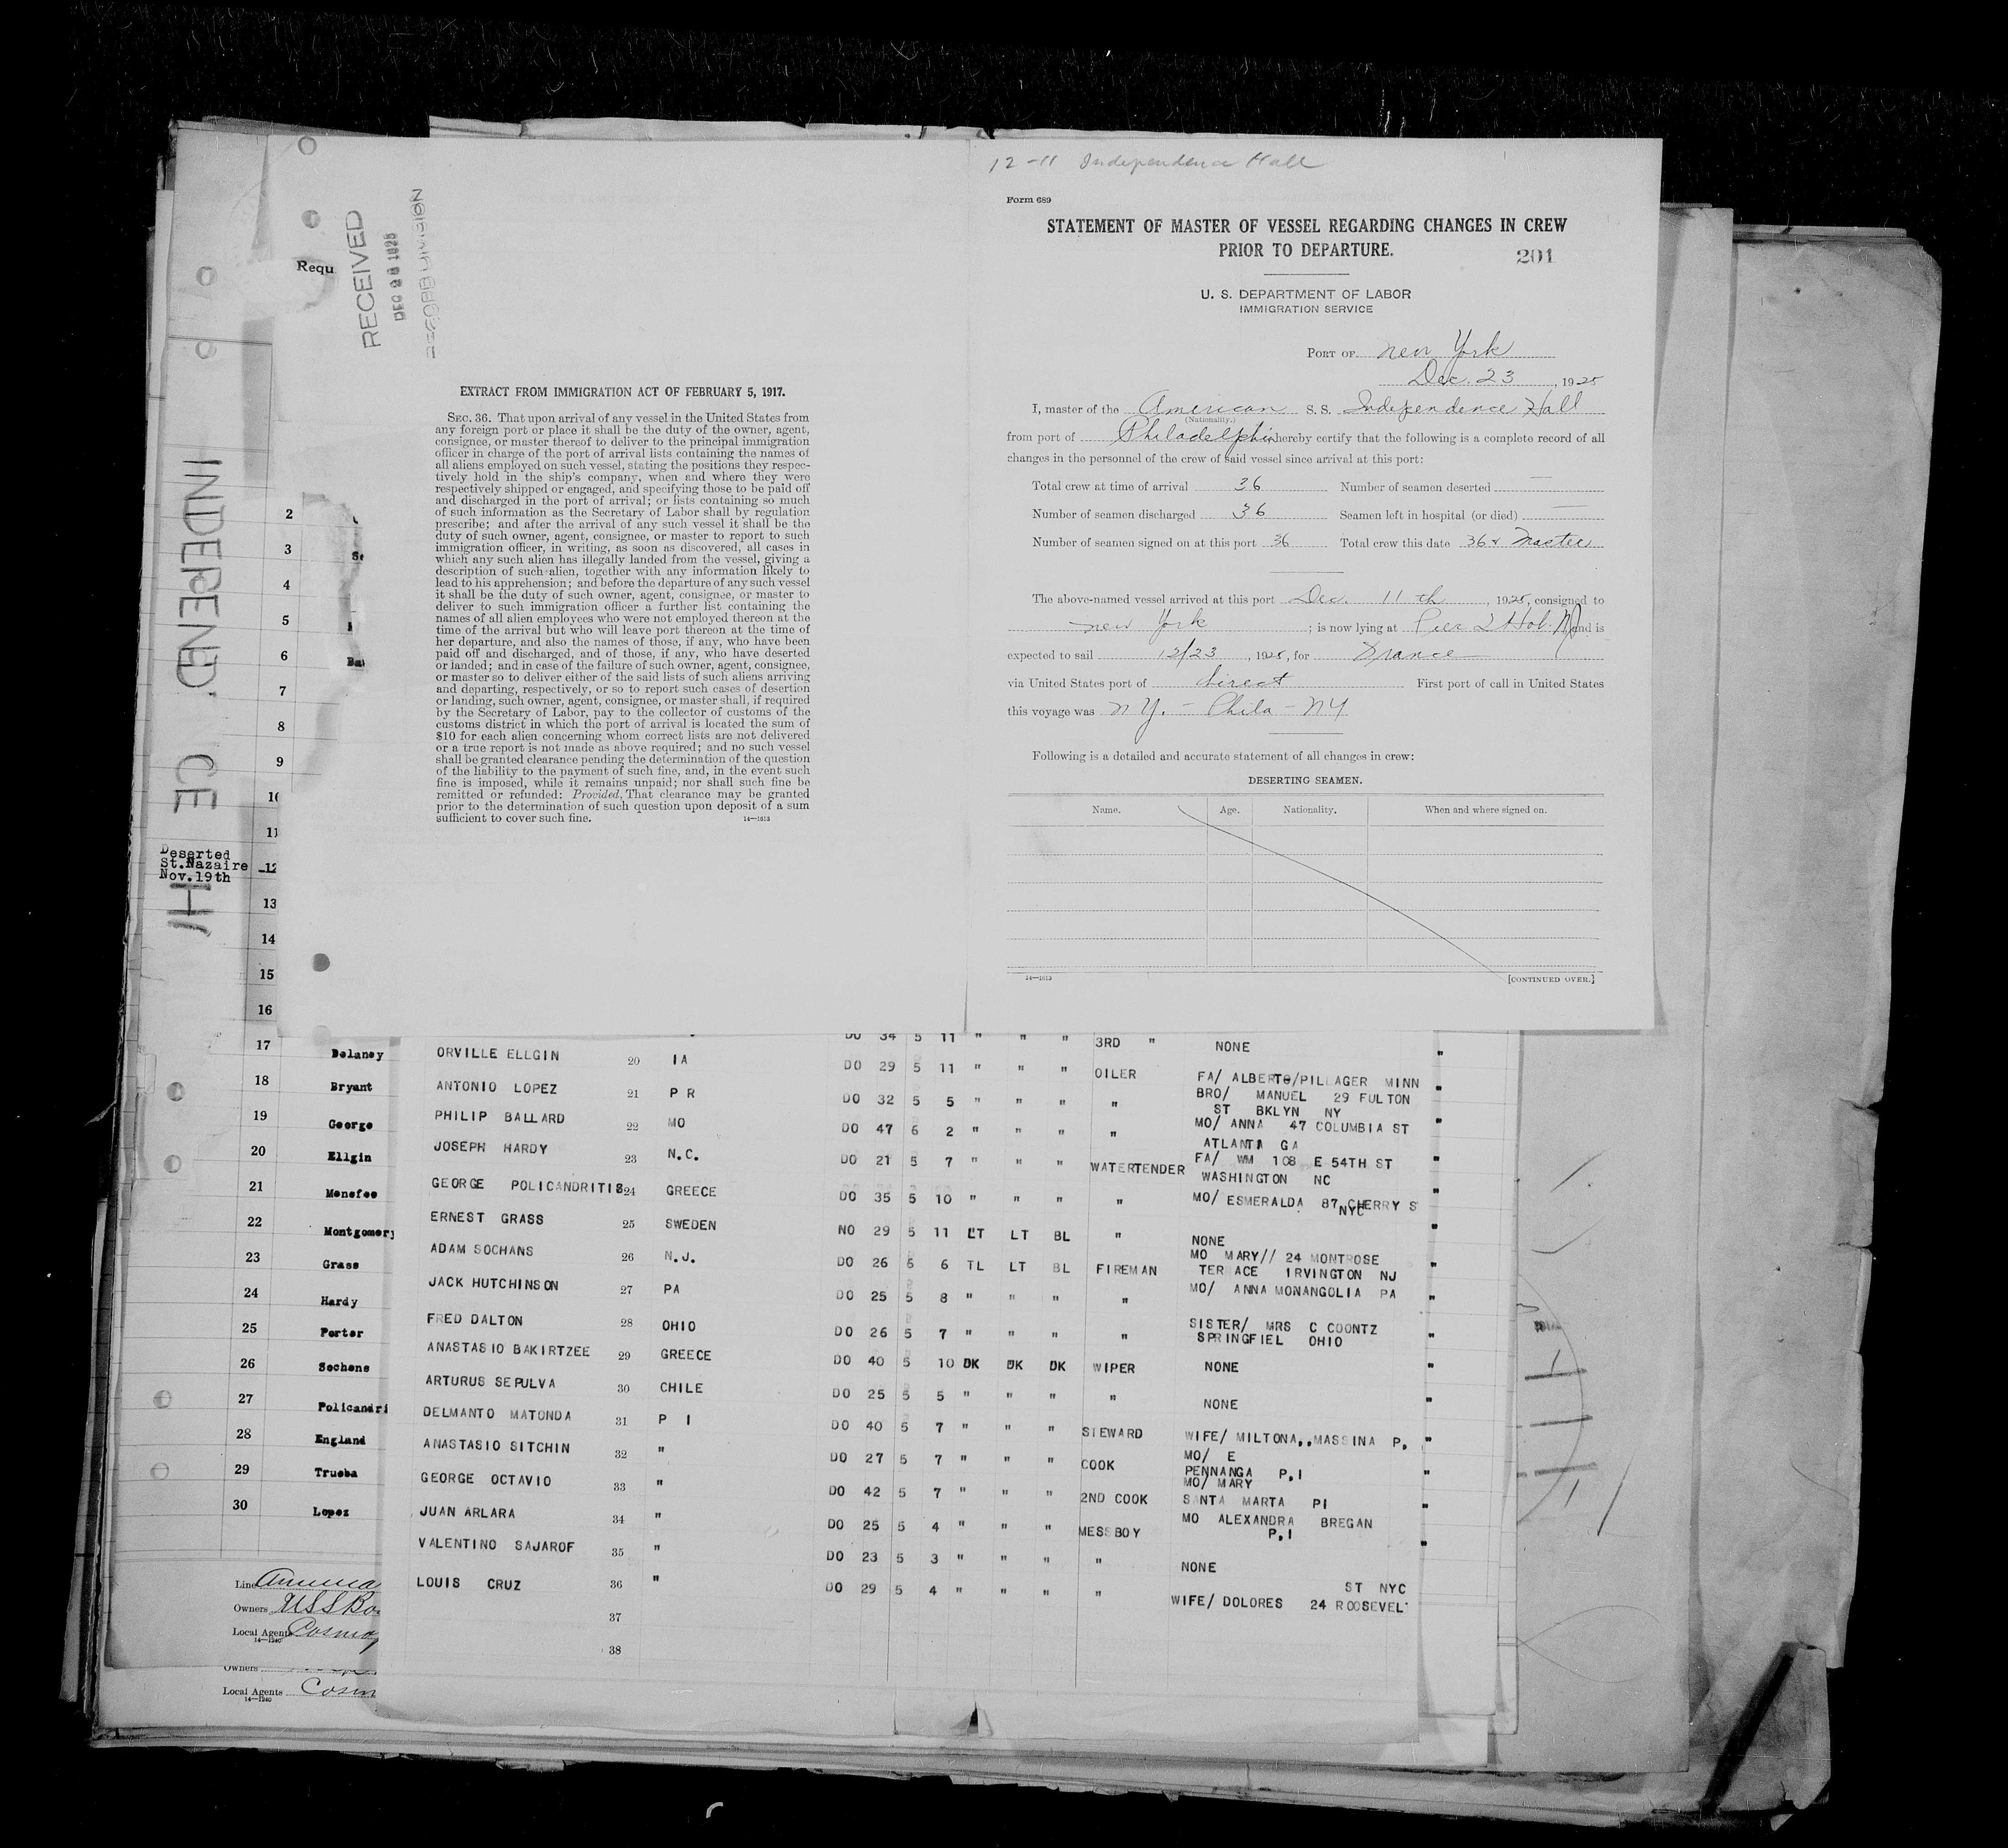 12-11 Independence Hall
Form 689
STATEMENT OF MASTER OF VESSEL REGARDING CHANGES IN CREW
PRIOR TO DEPARTURE.
201
U. S. DEPARTMENT OF LABOR
IMMIGRATION SERVICE
PORT OF New York
Dec. 23, 1925
I, master of the American S. S. Independence Hall
(Nationality.)
from port of Philadelphia hereby certify that the following is a complete record of all
changes in the personnel of the crew of said vessel since arrival at this port:
Total crew at time of arrival 36 Number of seamen deserted —
Number of seamen discharged 36 Seamen left in hospital (or died) —
Number of seamen signed on at this port 36 Total crew this date 36 & Master
The above-named vessel arrived at this port Dec. 11th, 1925, consigned to
New York; is now lying at Pier 2 Hob. NJ and is
expected to sail 12/23, 1925, for France
via United States port of direct First port of call in United States
this voyage was N Y. - Phila - NY
Following is a detailed and accurate statement of all changes in crew:
DESERTING SEAMEN.
Name. Age. Nationality. When and where signed on.
14—1613 [CONTINUED OVER.]
Requ
RECEIVED
DEC 1925
RECORD DIVISION
EXTRACT FROM IMMIGRATION ACT OF FEBRUARY 5, 1917.
SEC. 36. That upon arrival of any vessel in the United States from
any foreign port or place it shall be the duty of the owner, agent,
consignee, or master thereof to deliver to the principal immigration
officer in charge of the port of arrival lists containing the names of
all aliens employed on such vessel, stating the positions they respec-
tively hold in the ship's company, when and where they were
respectively shipped or engaged, and specifying those to be paid off
and discharged in the port of arrival; or lists containing so much
of such information as the Secretary of Labor shall by regulation
prescribe; and after the arrival of any such vessel it shall be the
duty of such owner, agent, consignee, or master to report to such
immigration officer, in writing, as soon as discovered, all cases in
which any such alien has illegally landed from the vessel, giving a
description of such alien, together with any information likely to
lead to his apprehension; and before the departure of any such vessel
it shall be the duty of such owner, agent, consignee, or master to
deliver to such immigration officer a further list containing the
names of all alien employees who were not employed thereon at the
time of the arrival but who will leave port thereon at the time of
her departure, and also the names of those, if any, who have been
paid off and discharged, and of those, if any, who have deserted
or landed; and in case of the failure of such owner, agent, consignee,
or master so to deliver either of the said lists of such aliens arriving
and departing, respectively, or so to report such cases of desertion
or landing, such owner, agent, consignee, or master shall, if required
by the Secretary of Labor, pay to the collector of customs of the
customs district in which the port of arrival is located the sum of
$10 for each alien concerning whom correct lists are not delivered
or a true report is not made as above required; and no such vessel
shall be granted clearance pending the determination of the question
of the liability to the payment of such fine, and, in the event such
fine is imposed, while it remains unpaid; nor shall such fine be
remitted or refunded: Provided, That clearance may be granted
prior to the determination of such question upon deposit of a sum
sufficient to cover such fine. 14—1613
INDEPEND CE H
Deserted
St.Nazaire
Nov.19th
2
3
4
5
6
7
8
9
10
11
12
13
14
15
16
17 Delaney
18 Bryant
19 George
20 Ellgin
21 Menefee
22 Montgomery
23 Grass
24 Hardy
25 Porter
26 Sochans
27 Policandri
28 England
29 Trueba
30 Lopez
DO 34 5 11 " " " 3RD " NONE "
ORVILLE ELLGIN 20 IA DO 29 5 11 " " " OILER FA/ ALBERTO/PILLAGER MINN "
ANTONIO LOPEZ 21 P R DO 32 5 5 " " " " BRO/ MANUEL 29 FULTON
ST BKLYN NY "
PHILIP BALLARD 22 MO DO 47 6 2 " " " " MO/ ANNA 47 COLUMBIA ST
ATLANTA GA "
JOSEPH HARDY 23 N.C. DO 21 5 7 " " " WATERTENDER FA/ WM 108 E 54TH ST
WASHINGTON NC "
GEORGE POLICANDRITIS 24 GREECE DO 35 5 10 " " " " MO/ ESMERALDA 87 CHERRY S
NYC "
ERNEST GRASS 25 SWEDEN NO 29 5 11 LT LT BL " NONE
ADAM SOCHANS 26 N.J. DO 26 5 6 TL LT BL FIREMAN MO MARY// 24 MONTROSE
TERRACE IRVINGTON NJ "
JACK HUTCHINSON 27 PA DO 25 5 8 " " " " MO/ ANNA MONANGOLIA PA "
FRED DALTON 28 OHIO DO 26 5 7 " " " " SISTER/ MRS C COONTZ
SPRINGFIEL OHIO "
ANASTASIO BAKIRTZEE 29 GREECE DO 40 5 10 DK DK DK WIPER NONE "
ARTURUS SEPULVA 30 CHILE DO 25 5 5 " " " " NONE "
DELMANTO MATONDA 31 P I DO 40 5 7 " " " STEWARD WIFE/ MILTONA,,MASSINA P, "
ANASTASIO SITCHIN 32 " DO 27 5 7 " " " COOK MO/ E
PENNANGA P,I "
GEORGE OCTAVIO 33 " DO 42 5 7 " " " 2ND COOK MO/ MARY
SANTA MARTA PI "
JUAN ARLARA 34 " DO 25 5 4 " " " MESSBOY MO ALEXANDRA BREGAN
P,I "
VALENTINO SAJAROF 35 " DO 23 5 3 " " " " NONE
LOUIS CRUZ 36 " DO 29 5 4 " " " " ST NYC
WIFE/ DOLORES 24 ROOSEVELT
37
38
Line America
Owners USS Bo
Local Agents Cosmo
14—1240
Owners
Local Agents Cosm
14—1240